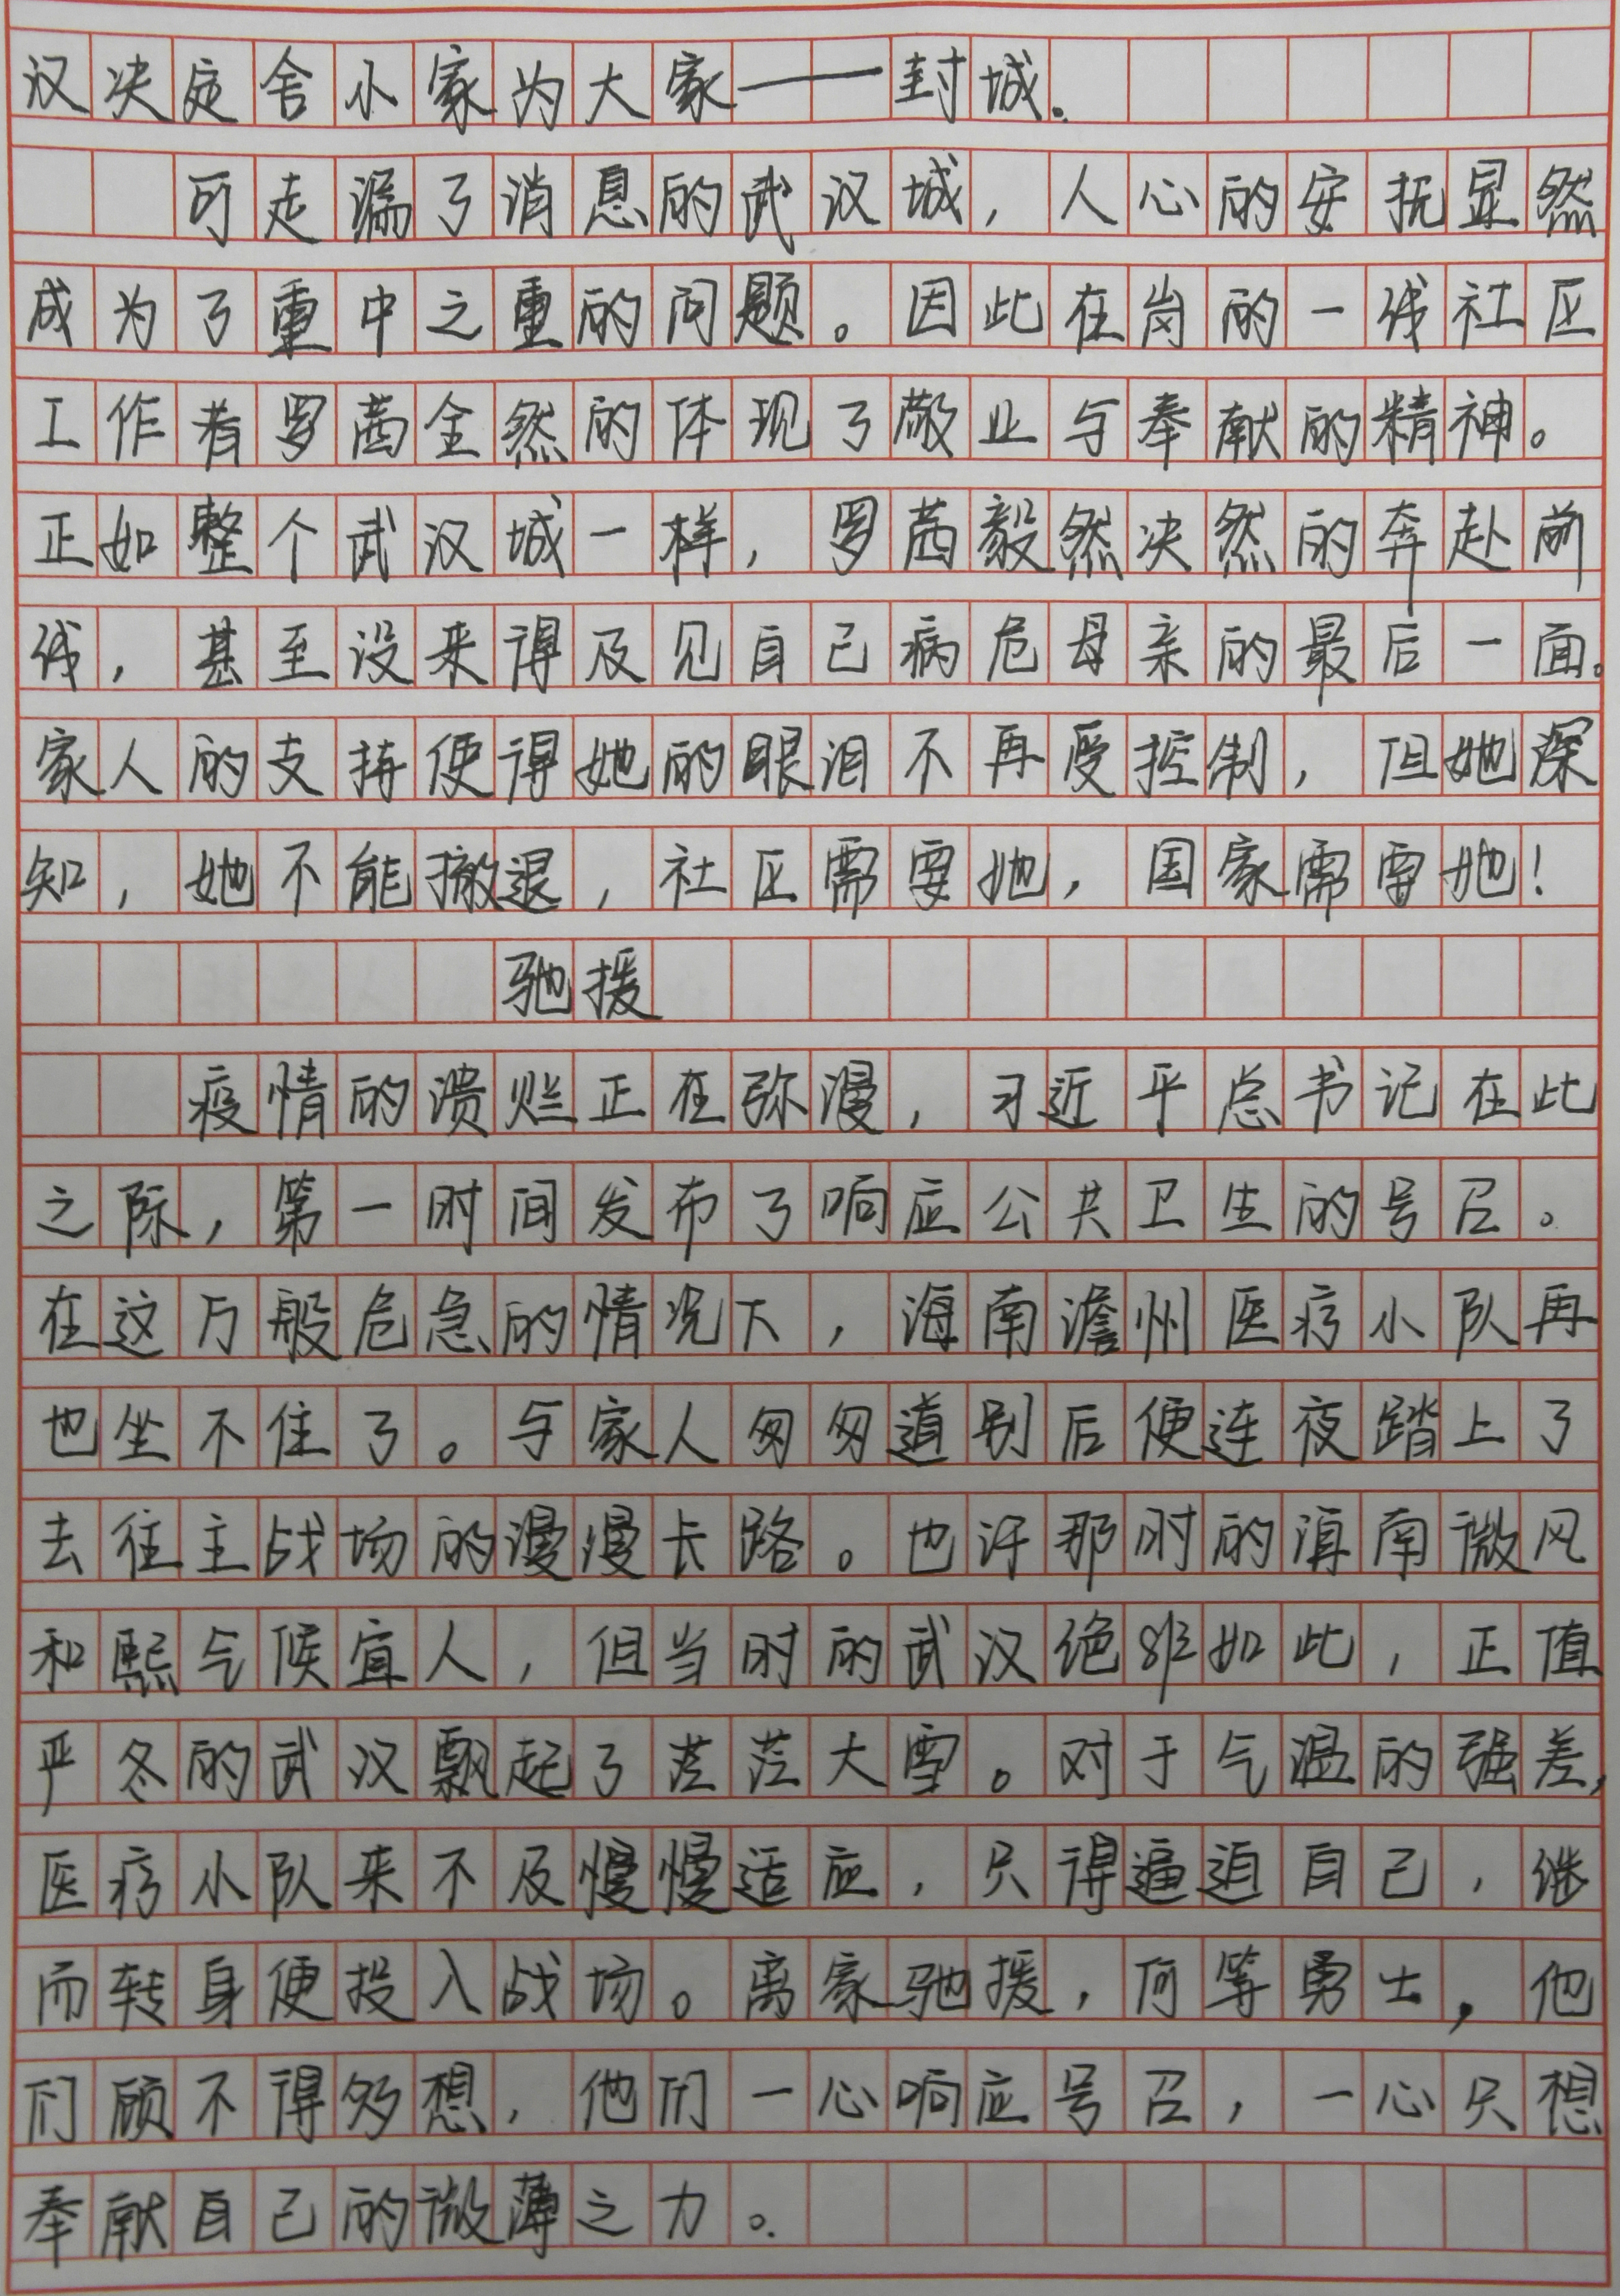 汉决定舍小家为大家——封城。
可走漏了消息的武汉城，人心的安抚显然
成为了重中之重的问题。因此在岗的一线社区
工作者罗茜全然的体现了敬业与奉献的精神。
正如整个武汉城一样，罗茜毅然决然的奔赴前
线，甚至没来得及见自己病危母亲的最后一面。
家人的支持使得她的眼泪不再受控制，但她深
知，她不能撤退，社区需要她，国家需要她！
驰援
疫情的溃烂正在弥漫，习近平总书记在此
之际，第一时间发布了响应公共卫生的号召。
在这万般危急的情况下，海南澹州医疗小队再
也坐不住了。与家人匆匆道别后便连夜踏上了
去往主战场的漫漫长路。也许那时的滇南微风
和熙气候宜人，但当时的武汉绝非如此，正值
严冬的武汉飘起了茫茫大雪。对于气温的强差，
医疗小队来不及慢慢适应，只得逼迫自己，继
而转身便投入战场。离家驰援，何等勇士，他
们顾不得多想，他们一心响应号召，一心只想
奉献自己的微薄之力。